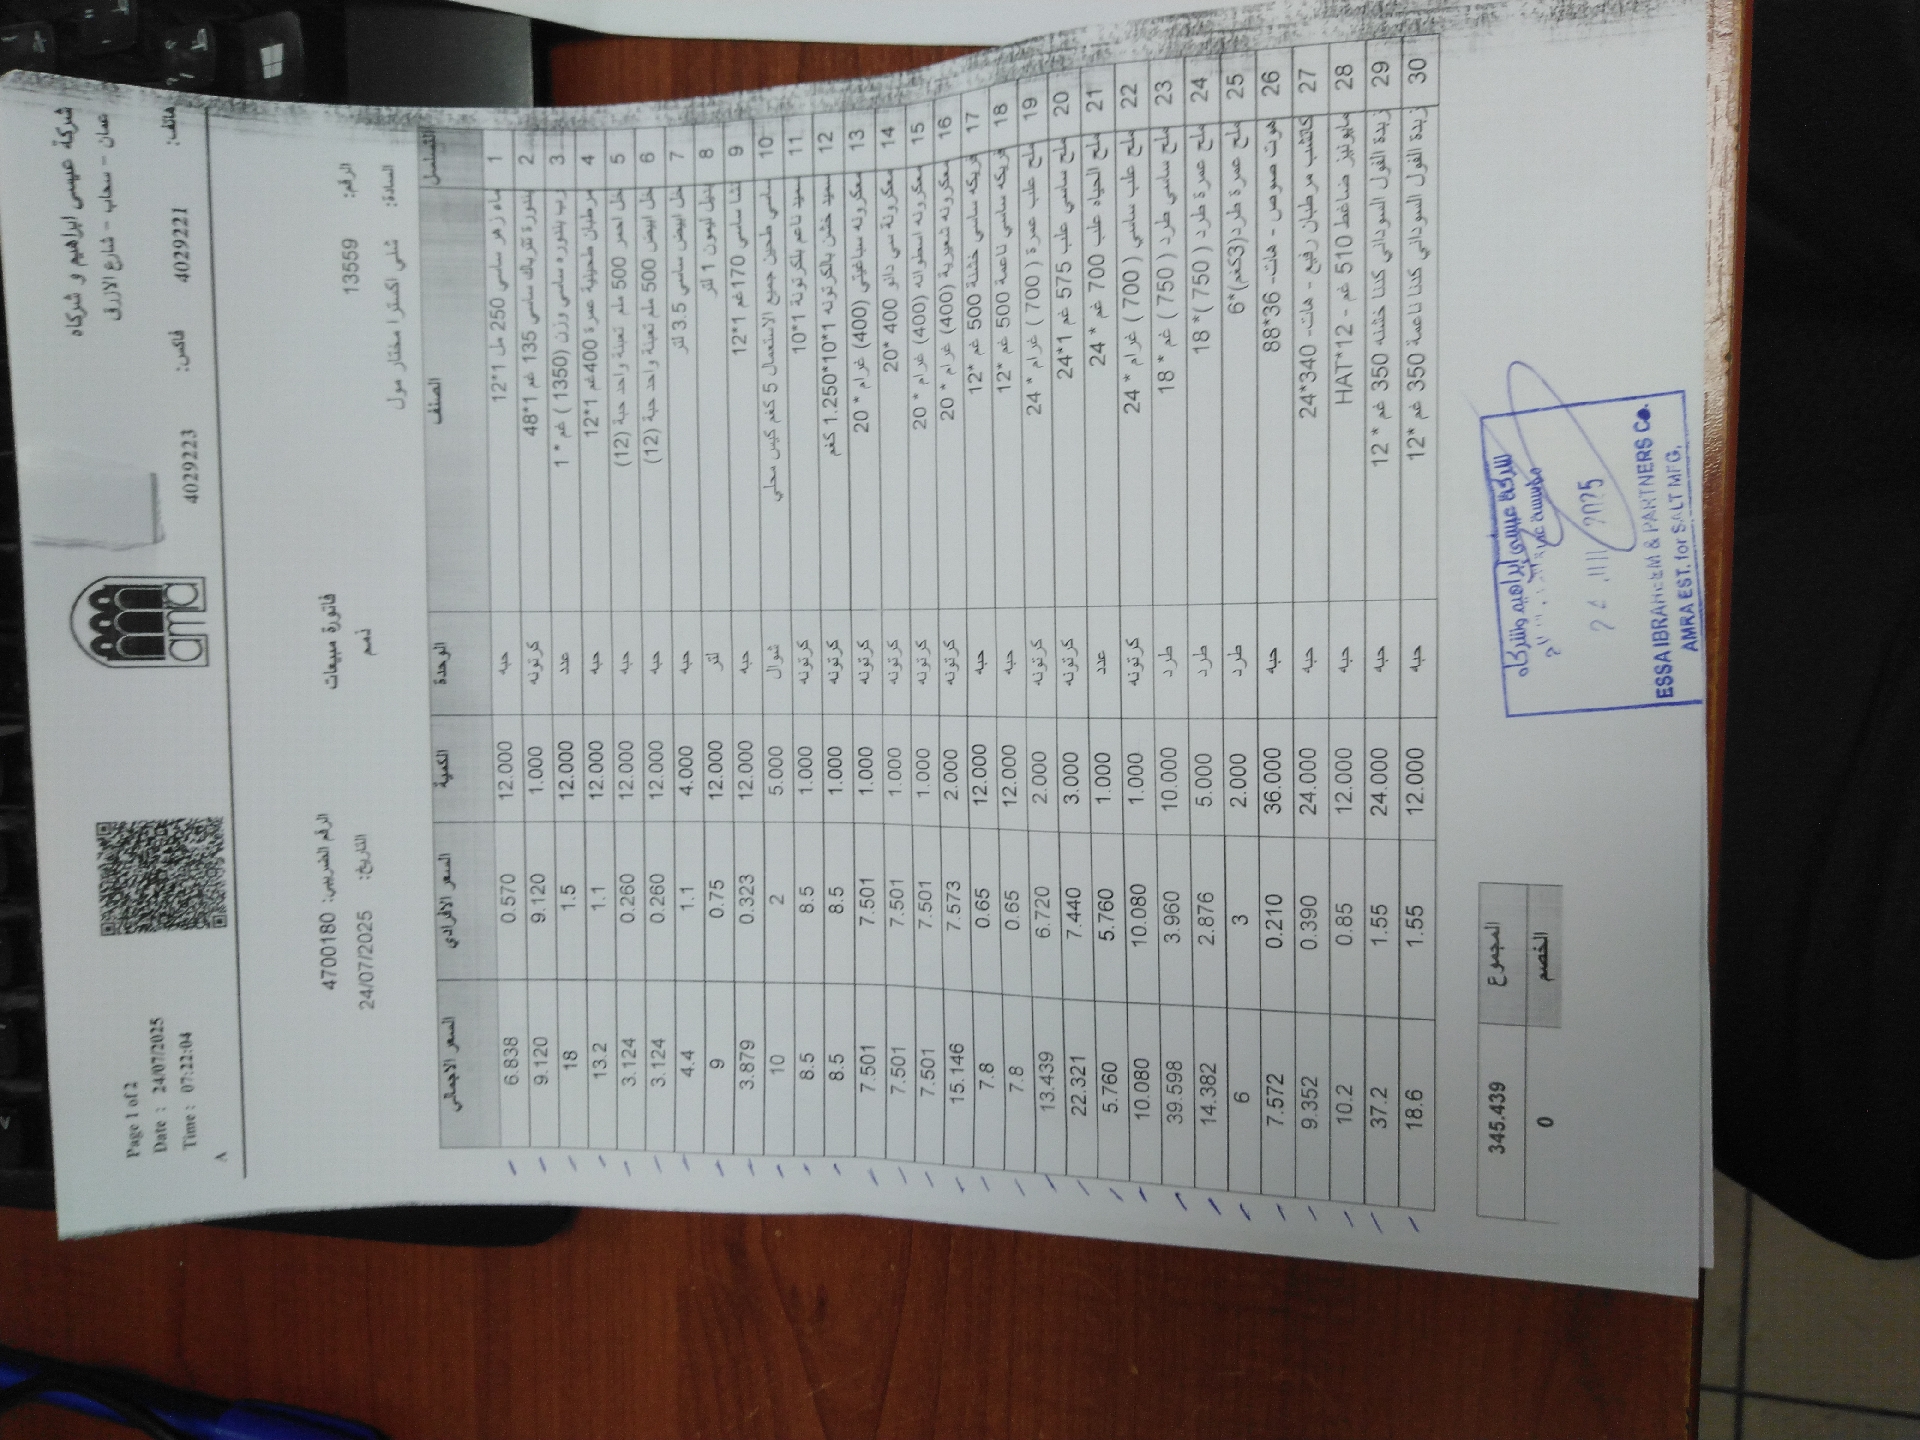 شركة عيسى ابراهيم و شركاه
عمان - سحاب - شارع الازرق
هاتف: 4029221 فاكس: 4029223
عمره
amra
Page 1 of 2
Date : 24/07/2025
Time : 07:22:04
A
فاتورة مبيعات
ذمم
الرقم: 13559
الرقم الضريبي: 4700180
السادة: شلي اكسترا مختار مول
التاريخ: 24/07/2025
التسلسل الصنف الوحدة الكمية السعر الافرادي السعر الاجمالي
1 ماء زهر ساسي 250 مل 1*12 حبه 12.000 0.570 6.838
2 بندورة تتر باك ساسي 135 غم 1*48 كرتونه 1.000 9.120 9.120
3 رب بندوره ساسي وزن (1350 ) غم * 1 عدد 12.000 1.5 18
4 مرطبان طحينية عمرة 400غم 1*12 حبه 12.000 1.1 13.2
5 خل احمر 500 ملم تعبئة واحد حبة (12) حبه 12.000 0.260 3.124
6 خل ابيض 500 ملم تعبئة واحد حبة (12) حبه 12.000 0.260 3.124
7 خل ابيض ساسي 3.5 لتر حبه 4.000 1.1 4.4
8 بديل ليمون 1 لتر لتر 12.000 0.75 9
9 نشا ساسي 170غم 1*12 حبه 12.000 0.323 3.879
10 ساسي طحين جميع الاستعمال 5 كغم كيس محلي شوال 5.000 2 10
11 سميد ناعم بلكرتونة 1*10 كرتونه 1.000 8.5 8.5
12 سميد خشن بالكرتونه 1*10*1.250 كغم كرتونه 1.000 8.5 8.5
13 معكرونه سباغيتي (400) غرام * 20 كرتونه 1.000 7.501 7.501
14 معكرونة سي دانو 400 *20 كرتونه 1.000 7.501 7.501
15 معكرونه اسطوانه (400) غرام * 20 كرتونه 1.000 7.501 7.501
16 معكرونه شعيرية (400) غرام * 20 كرتونه 2.000 7.573 15.146
17 فريكه ساسي خشنة 500 غم *12 حبه 12.000 0.65 7.8
18 فريكه ساسي ناعمة 500 غم *12 حبه 12.000 0.65 7.8
19 ملح علب عمرة ( 700 ) غرام * 24 كرتونه 2.000 6.720 13.439
20 ملح ساسي علب 575 غم 1*24 كرتونه 3.000 7.440 22.321
21 ملح الحياه علب 700 غم * 24 عدد 1.000 5.760 5.760
22 ملح علب ساسي ( 700 ) غرام * 24 كرتونه 1.000 10.080 10.080
23 ملح ساسي طرد ( 750 ) غم * 18 طرد 10.000 3.960 39.598
24 ملح عمرة طرد ( 750 )* 18 طرد 5.000 2.876 14.382
25 ملح عمرة طرد(3كغم)*6 طرد 2.000 3 6
26 هوت صوص - هات- 36*88 حبه 36.000 0.210 7.572
27 كاتشب مرطبان رفيع - هات- 340*24 حبه 24.000 0.390 9.352
28 مايونيز ضاغط 510 غم - HAT*12 حبه 12.000 0.85 10.2
29 زبدة الفول السوداني كندا خشنه 350 غم * 12 حبه 24.000 1.55 37.2
30 زبدة الفول السوداني كندا ناعمة 350 غم *12 حبه 12.000 1.55 18.6
المجموع 345.439
الخصم 0
شركة عيسى إبراهيم وشركاه
2025
ESSA IBRAHEEM & PARTNERS Co.
AMRA EST. for SALT MFG.